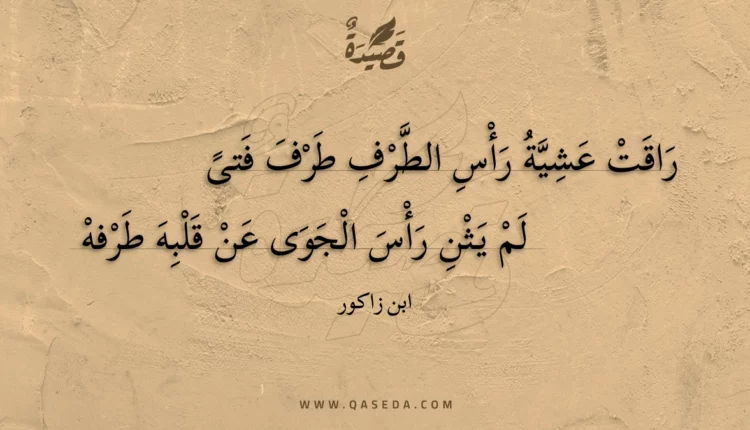 قَصِيْدَةٌ
رَاقَتْ عَشِيَّةُ رَأْسِ الطَّرْفِ طَرْفَ فَتىً
لَمْ يَثْنِ رَأْسَ الْجَوَى عَنْ قَلْبِهَ طَرْفهْ
ابن زاكور
WWW.QASEDA.COM